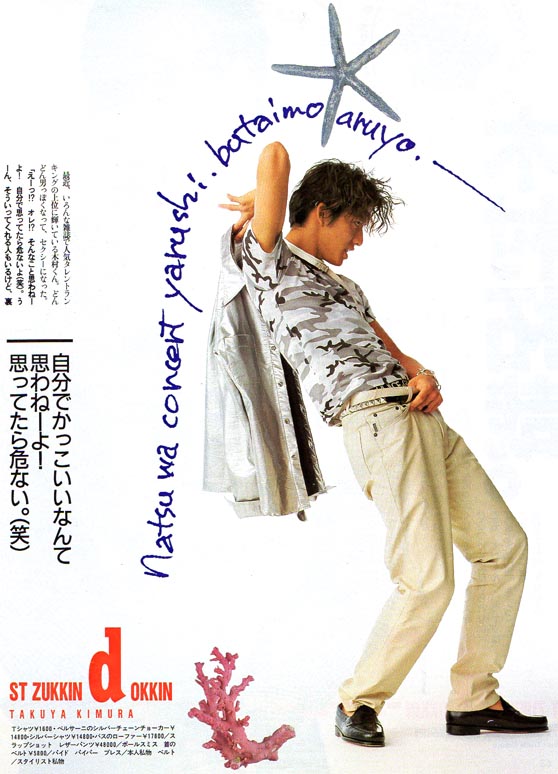 Natsu wa concert yarushi.. butaimo aruyo. —
最近、いろんな雑誌で人気タレントラン
キングの上位に輝いている木村くん。どん
どん男っぽくなって、セクシーになった。
「えーっ!? オレ!? そんなこと思わねー
よー 自分で思ってたら危ないよ(笑)。う
ーん、そういってくれる人もいるけど、裏
自分でかっこいいなんて
思わねーよー!
思ってたら危ない。(笑)
ST ZUKKIN d OKKIN
TAKUYA KIMURA
Tシャツ¥1800・ベルサーニのシルバーチェーンチョーカー¥
14800・シルバーシャツ¥14800・バスのローファー¥17800/ス
ラップショット レザーパンツ¥48000/ポールスミス 首の
ベルト¥5800/パイド パイパー プレス/本人私物 ベルト
/スタイリスト私物